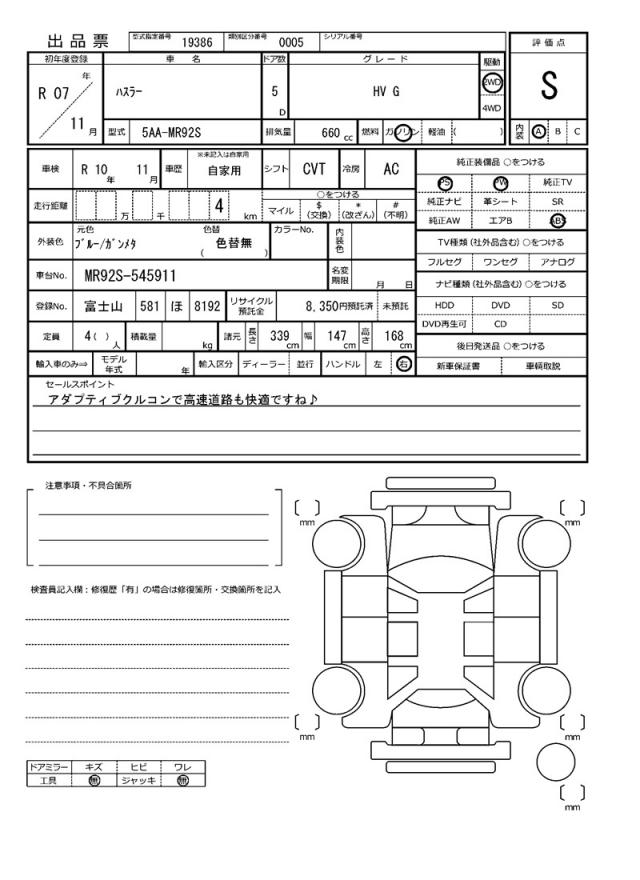 出品票 型式指定番号 19386 類別区分番号 0005 シリアル番号
評価点
S
内装 A B C
初年度登録 車名 ドア数 グレード 駆動
R 07 年 11 月 ハスラー 5 D HV G 2WD 4WD
型式 5AA-MR92S 排気量 660 cc 燃料 ガソリン 軽油 ( )
車検 R 10 年 11 月 車歴 ※未記入は自家用 自家用 シフト CVT 冷房 AC
走行距離 万 千 4 km ○をつける
マイル $ (交換) * (改ざん) # (不明)
外装色 元色 ブルー/ガンメタ 色替 ( 色替無 ) カラーNo. 内装色
車台No. MR92S-545911 名変期限 月 日
登録No. 富士山 581 ほ 8192 リサイクル預託金 8,350円預託済 未預託
定員 4 ( ) 人 積載量 kg 諸元 長さ 339 cm 幅 147 cm 高さ 168 cm
輸入車のみ⇒ モデル年式 年 輸入区分 ディーラー 並行 ハンドル 左 右
純正装備品 ○をつける
PS PW 純正TV
純正ナビ 革シート SR
純正AW エアB ABS
TV種類 (社外品含む) ○をつける
フルセグ ワンセグ アナログ
ナビ種類 (社外品含む) ○をつける
HDD DVD SD
DVD再生可 CD
後日発送品 ○をつける
新車保証書 車輌取説
セールスポイント
アダプティブクルコンで高速道路も快適ですね♪
注意事項・不具合箇所
検査員記入欄：修復歴「有」の場合は修復箇所・交換箇所を記入
ドアミラー キズ ヒビ ワレ
工具 無 ジャッキ 無
mm
mm
mm
mm
mm